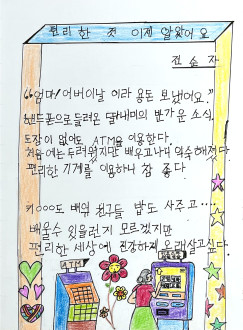 편리한 것 이제 알았어요
전술자
"엄마! 어버이날 이라 용돈 보냈어요."
핸드폰으로 들려온 딸내미의 반가운 소식.
도장이 없어도 ATM을 이용한다.
처음에는 두려웠지만 배우고나니 익숙해졌다.
편리한 기계를 이용하니 참 좋다
키오스도 배워 친구들 밥도 사주고····
배울수 있을런지 모르겠지만
편리한 세상에 건강하게 오래살고싶다.
ATM